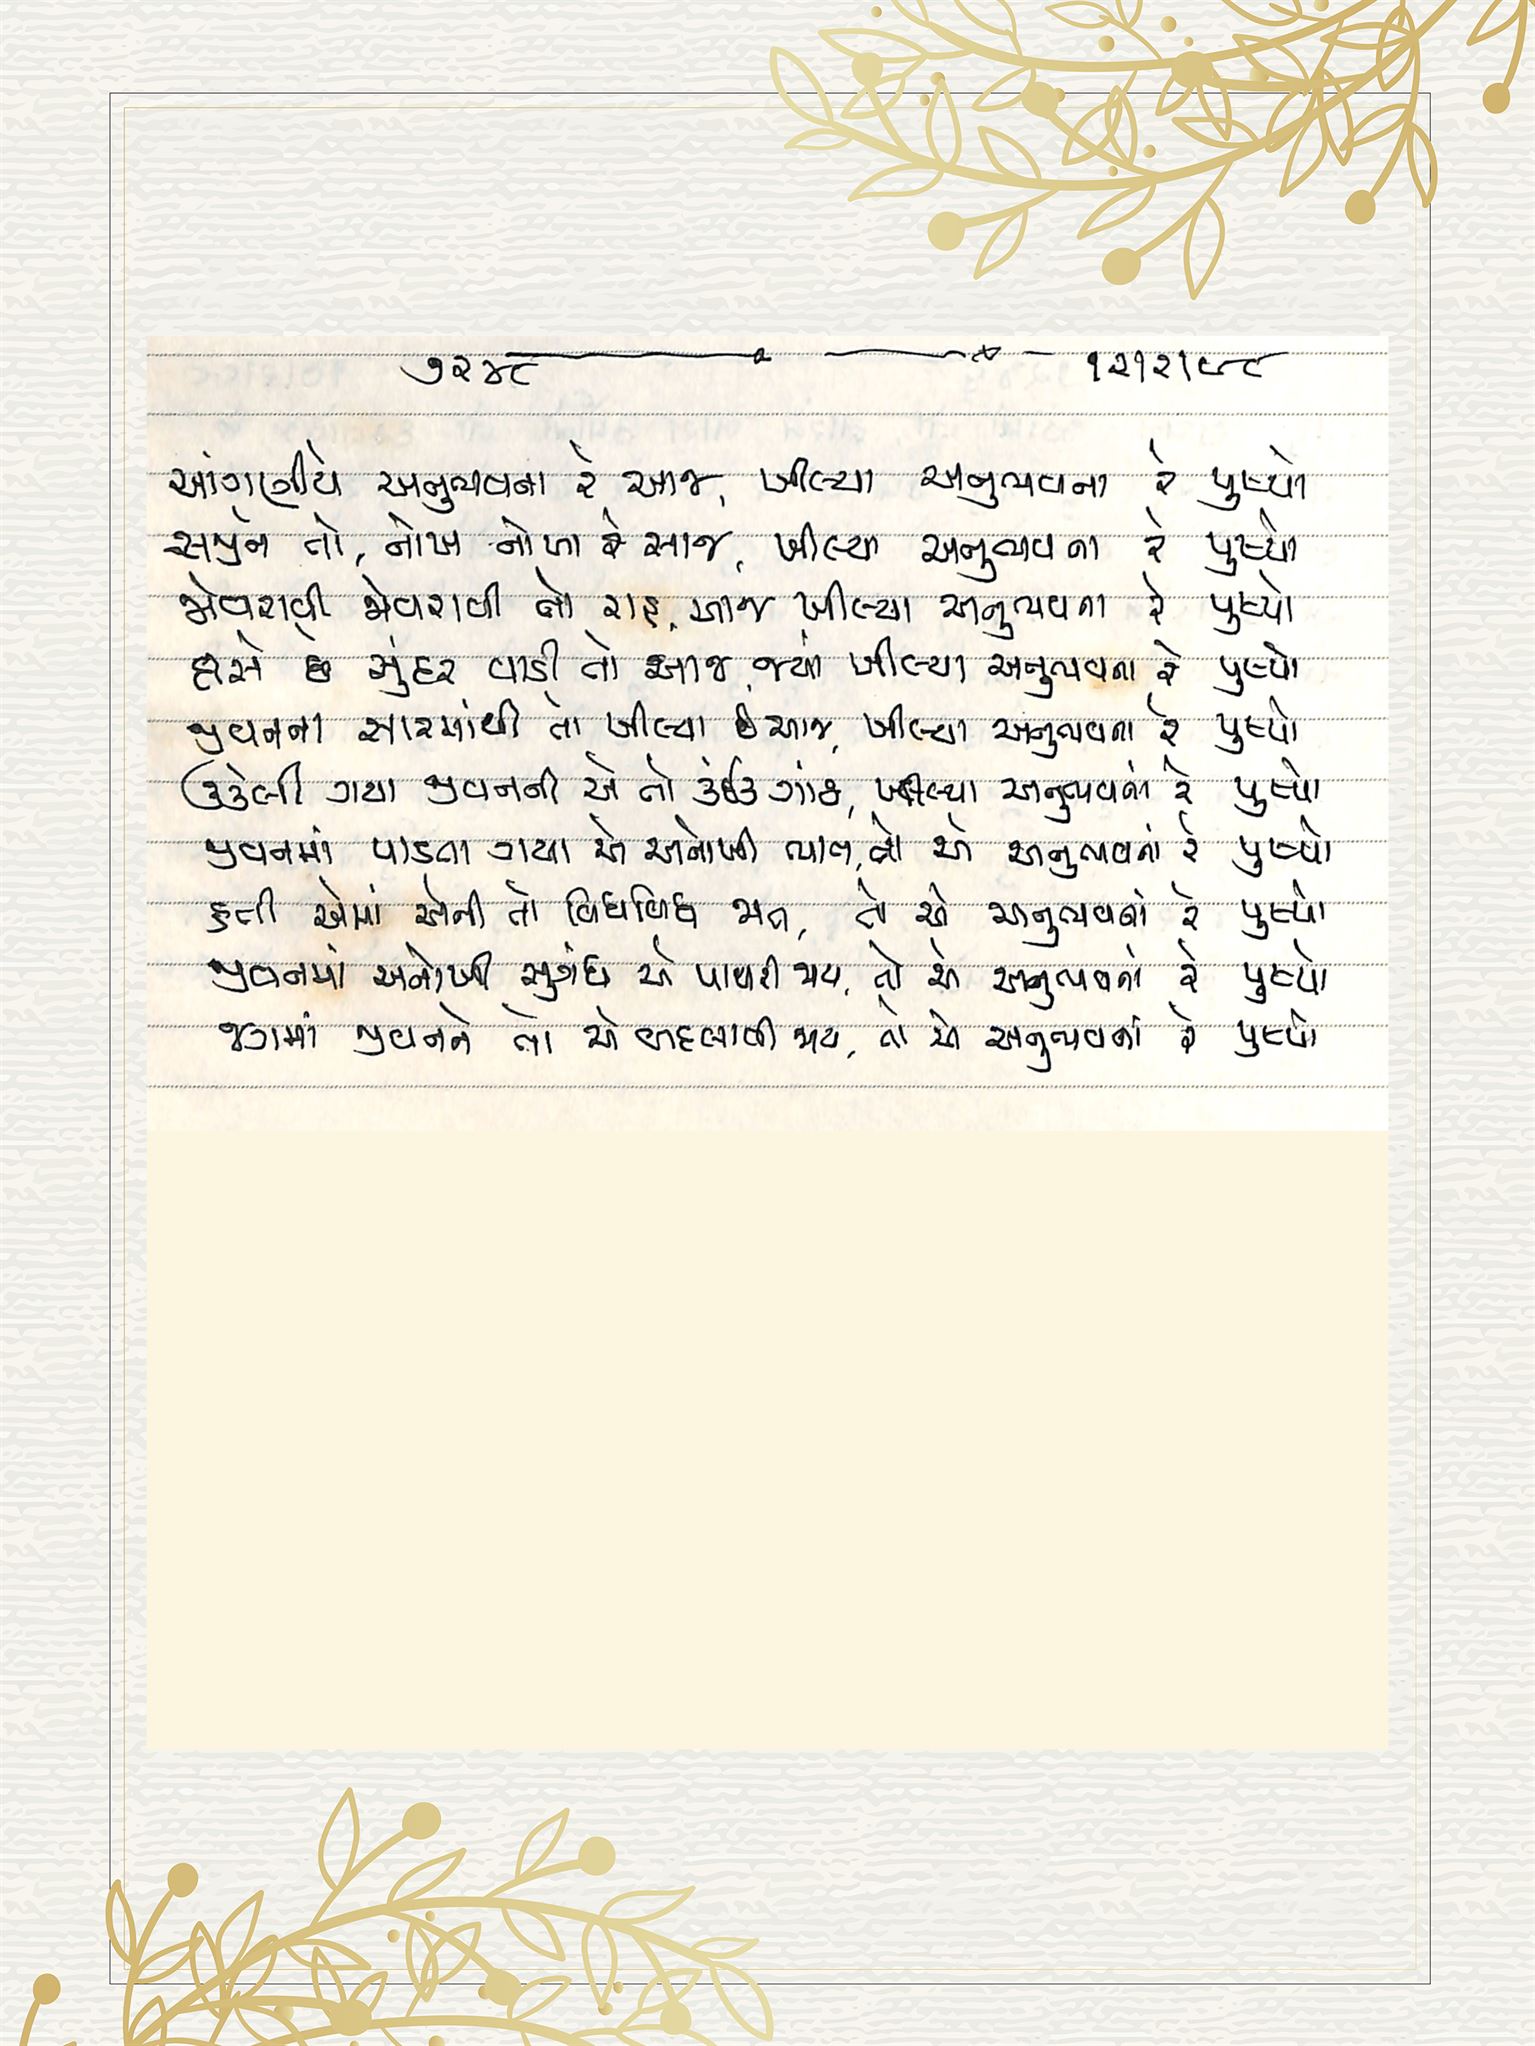 ૭૨૪૮ ૧૨।૨।૯૮
આંગણીયે અનુભવના રે આજ, ખીલ્યા અનુભવના રે પુષ્પો
સજીને તો, નોખ નોખા રે સાજ, ખીલ્યા અનુભવના રે પુષ્પો
જોવરાવી જોવરાવી તો રાહ, આજ ખીલ્યા અનુભવના રે પુષ્પો
હસે છે સુંદર વાડી તો આજ, જ્યાં ખીલ્યા અનુભવના રે પુષ્પો
જીવનના સારમાંથી તો ખીલ્યા છે આજ, ખીલ્યા અનુભવના રે પુષ્પો
ઉકેલી ગયા જીવનની એ તો કંઈક ગાંઠ, ખીલ્યા અનુભવનાં રે પુષ્પો
જીવનમાં પાડતા ગયા એ અનોખી ભાત, તો એ અનુભવનાં રે પુષ્પો
હતી એમાં એની તો વિધવિધ જાત, તો એ અનુભવનાં રે પુષ્પો
જીવનમાં અનોખી સુગંધ એ પાથરી જાય, તો એ અનુભવનાં રે પુષ્પો
જગમાં જીવનને તો એ બદલાવી જાય, તો એ અનુભવનાં રે પુષ્પો